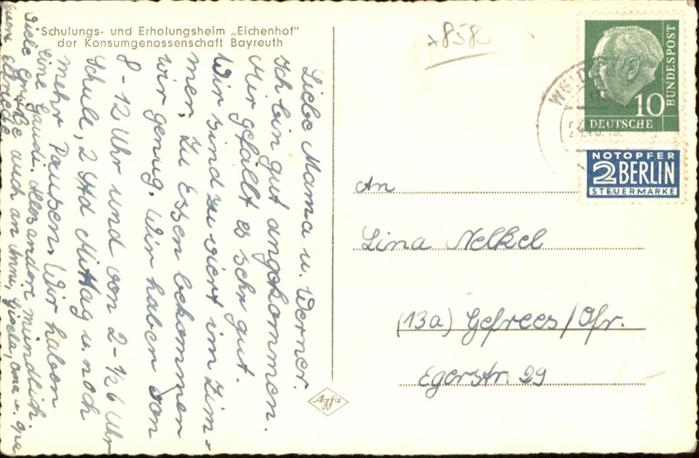 Schulungs- und Erholungsheim „Eichenhof"
der Konsumgenossenschaft Bayreuth
Liebe Mama u. Werner.
Ich bin gut angekommen.
Mir gefällt es sehr gut.
Wir sind zu viert im Zim-
mer. Zu Essen bekommen
wir genug. Wir haben von
8 - 12 Uhr und von 2 - 1/26 Uhr
Schule, 2 Std Mittag u. noch
mehr Pausen. Wir haben
eine Gaudi. Alles andere mündlich.
Viele Grüße auch an
Oma u. Opa
+8582
WEID
10
DEUTSCHE
BUNDESPOST
NOTOPFER
2 BERLIN
STEUERMARKE
An
Lina Nelkel
(13a) Gefrees/Ofr.
Egerstr. 29
Agfa